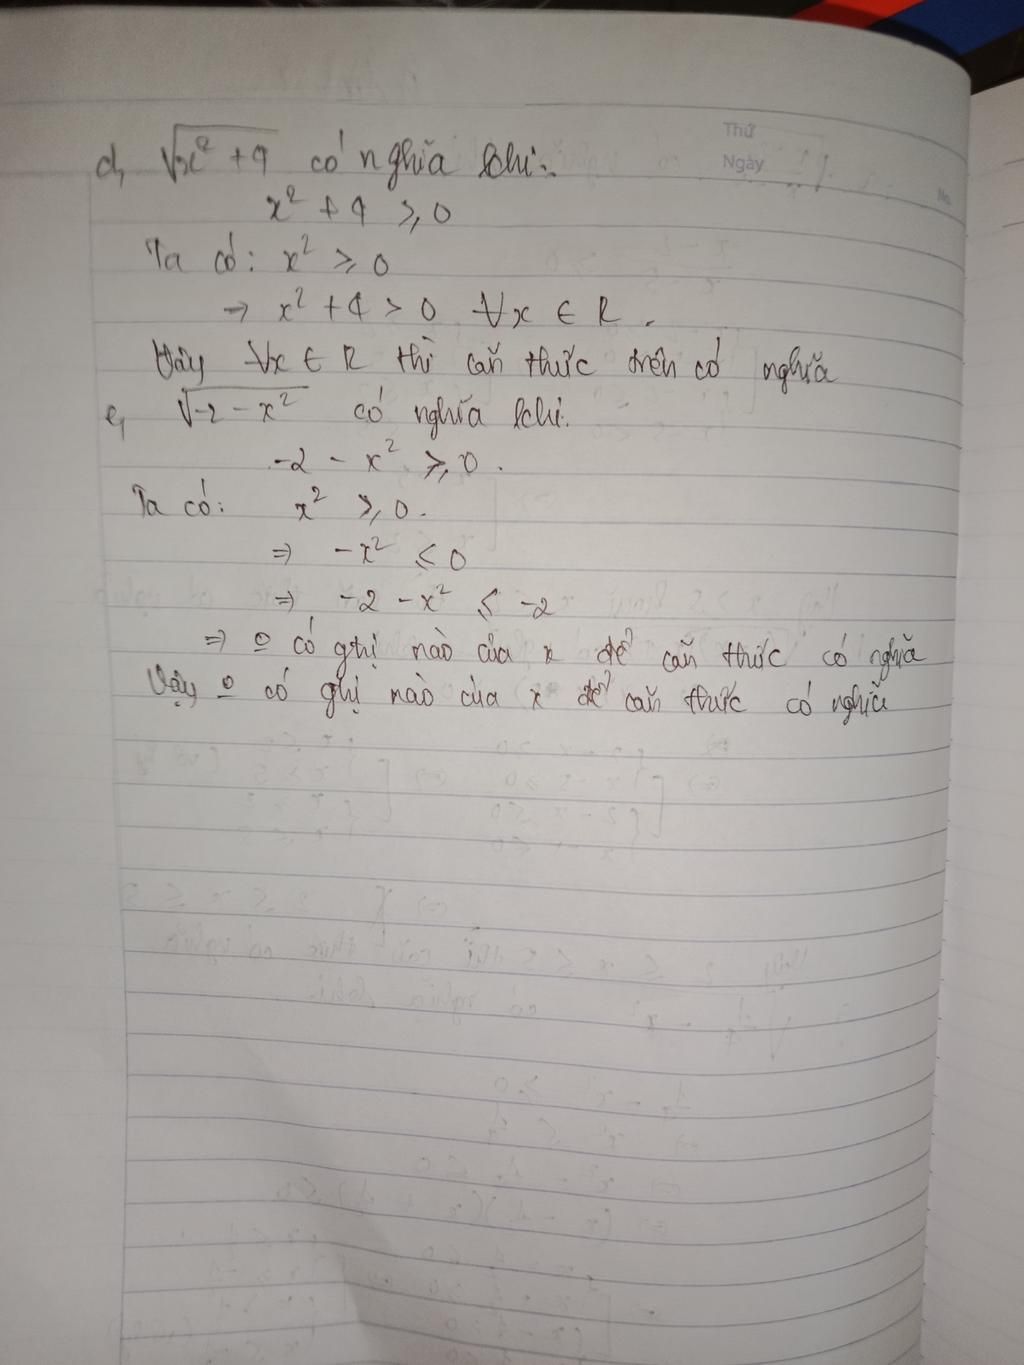 Thứ
Ngày
No.
d, √x² + 4 có nghĩa khi:
x² + 4 ≥ 0
Ta có: x² ≥ 0
→ x² + 4 > 0 ∀x ∈ R.
Vậy ∀x ∈ R thì căn thức trên có nghĩa
e, √-2 - x² có nghĩa khi.
-2 - x² ≥ 0.
Ta có: x² ≥ 0.
⇒ -x² ≤ 0
⇒ -2 - x² ≤ -2
⇒ có ghị nào của x để căn thức có nghĩa
Vậy có ghị nào của x để căn thức có nghĩa